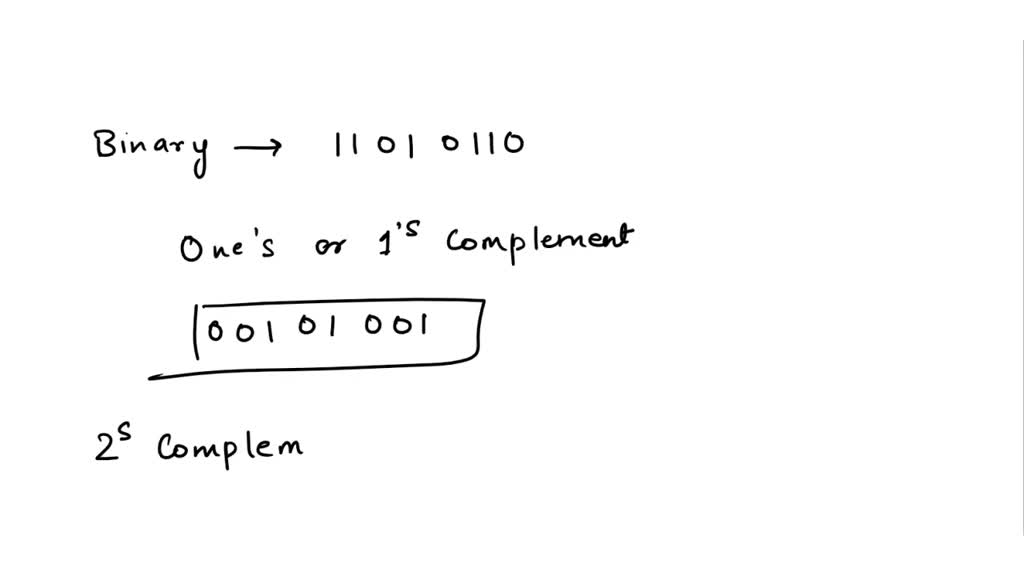 Binary → 11010110
One's or 1's Complement
00101001
2s Complem